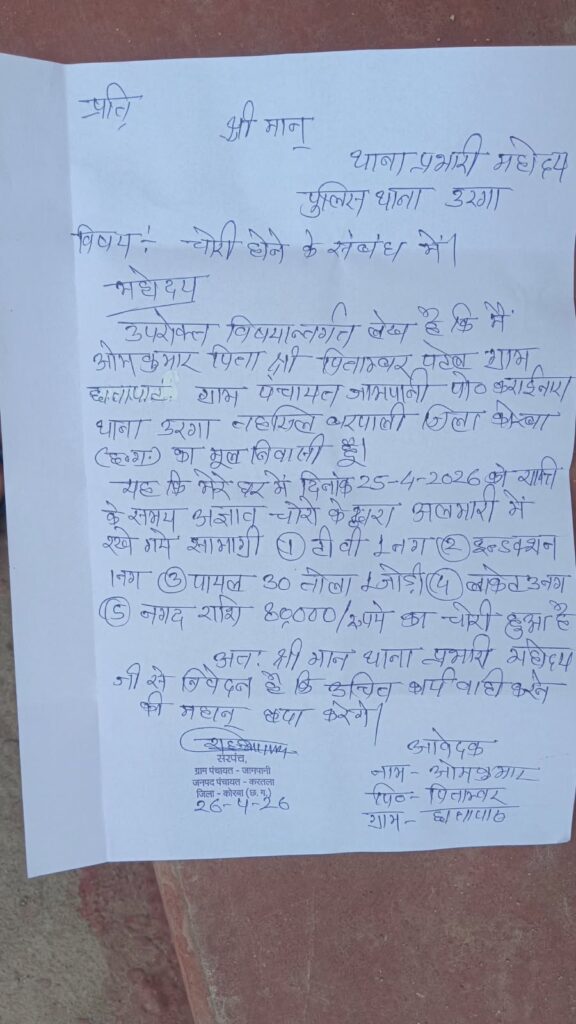 प्रति,
श्री मान्
थाना प्रभारी महोदय
पुलिस थाना उरगा
विषय :- चोरी होने के संबंध में।
महोदय
उपरोक्त विषयान्तर्गत लेख है कि मैं
ओमकुमार पिता श्री पिताम्बर पटेल ग्राम
ग्राम पंचायत जामपानी पो०
थाना उरगा तहसिल बरपाली जिला कोरबा
(छ.ग.) का मूल निवासी हूँ।
यह कि मेरे घर में दिनांक 25-4-2026 को रात्रि
के समय अज्ञात चोरो के द्वारा अलमारी में
रखे गये सामाग्री ① टी वी 1 नग ② इन्डक्शन
1नग ③ पायल 30 तोला 1जोड़ी ④ लाकेट 3नग
⑤ नगद राशि 80,000/ रूपये का चोरी हुआ है
अतः श्री मान थाना प्रभारी महोदय
जी से निवेदन है कि उचित कार्यवाही करने
की महान करेंगे।
सरपंच,
ग्राम पंचायत - जामपानी
जनपद पंचायत - करतला
जिला - कोरबा (छ.ग.)
26-4-26
आवेदक
नाम - ओमकुमार
पिता - पिताम्बर
ग्राम -